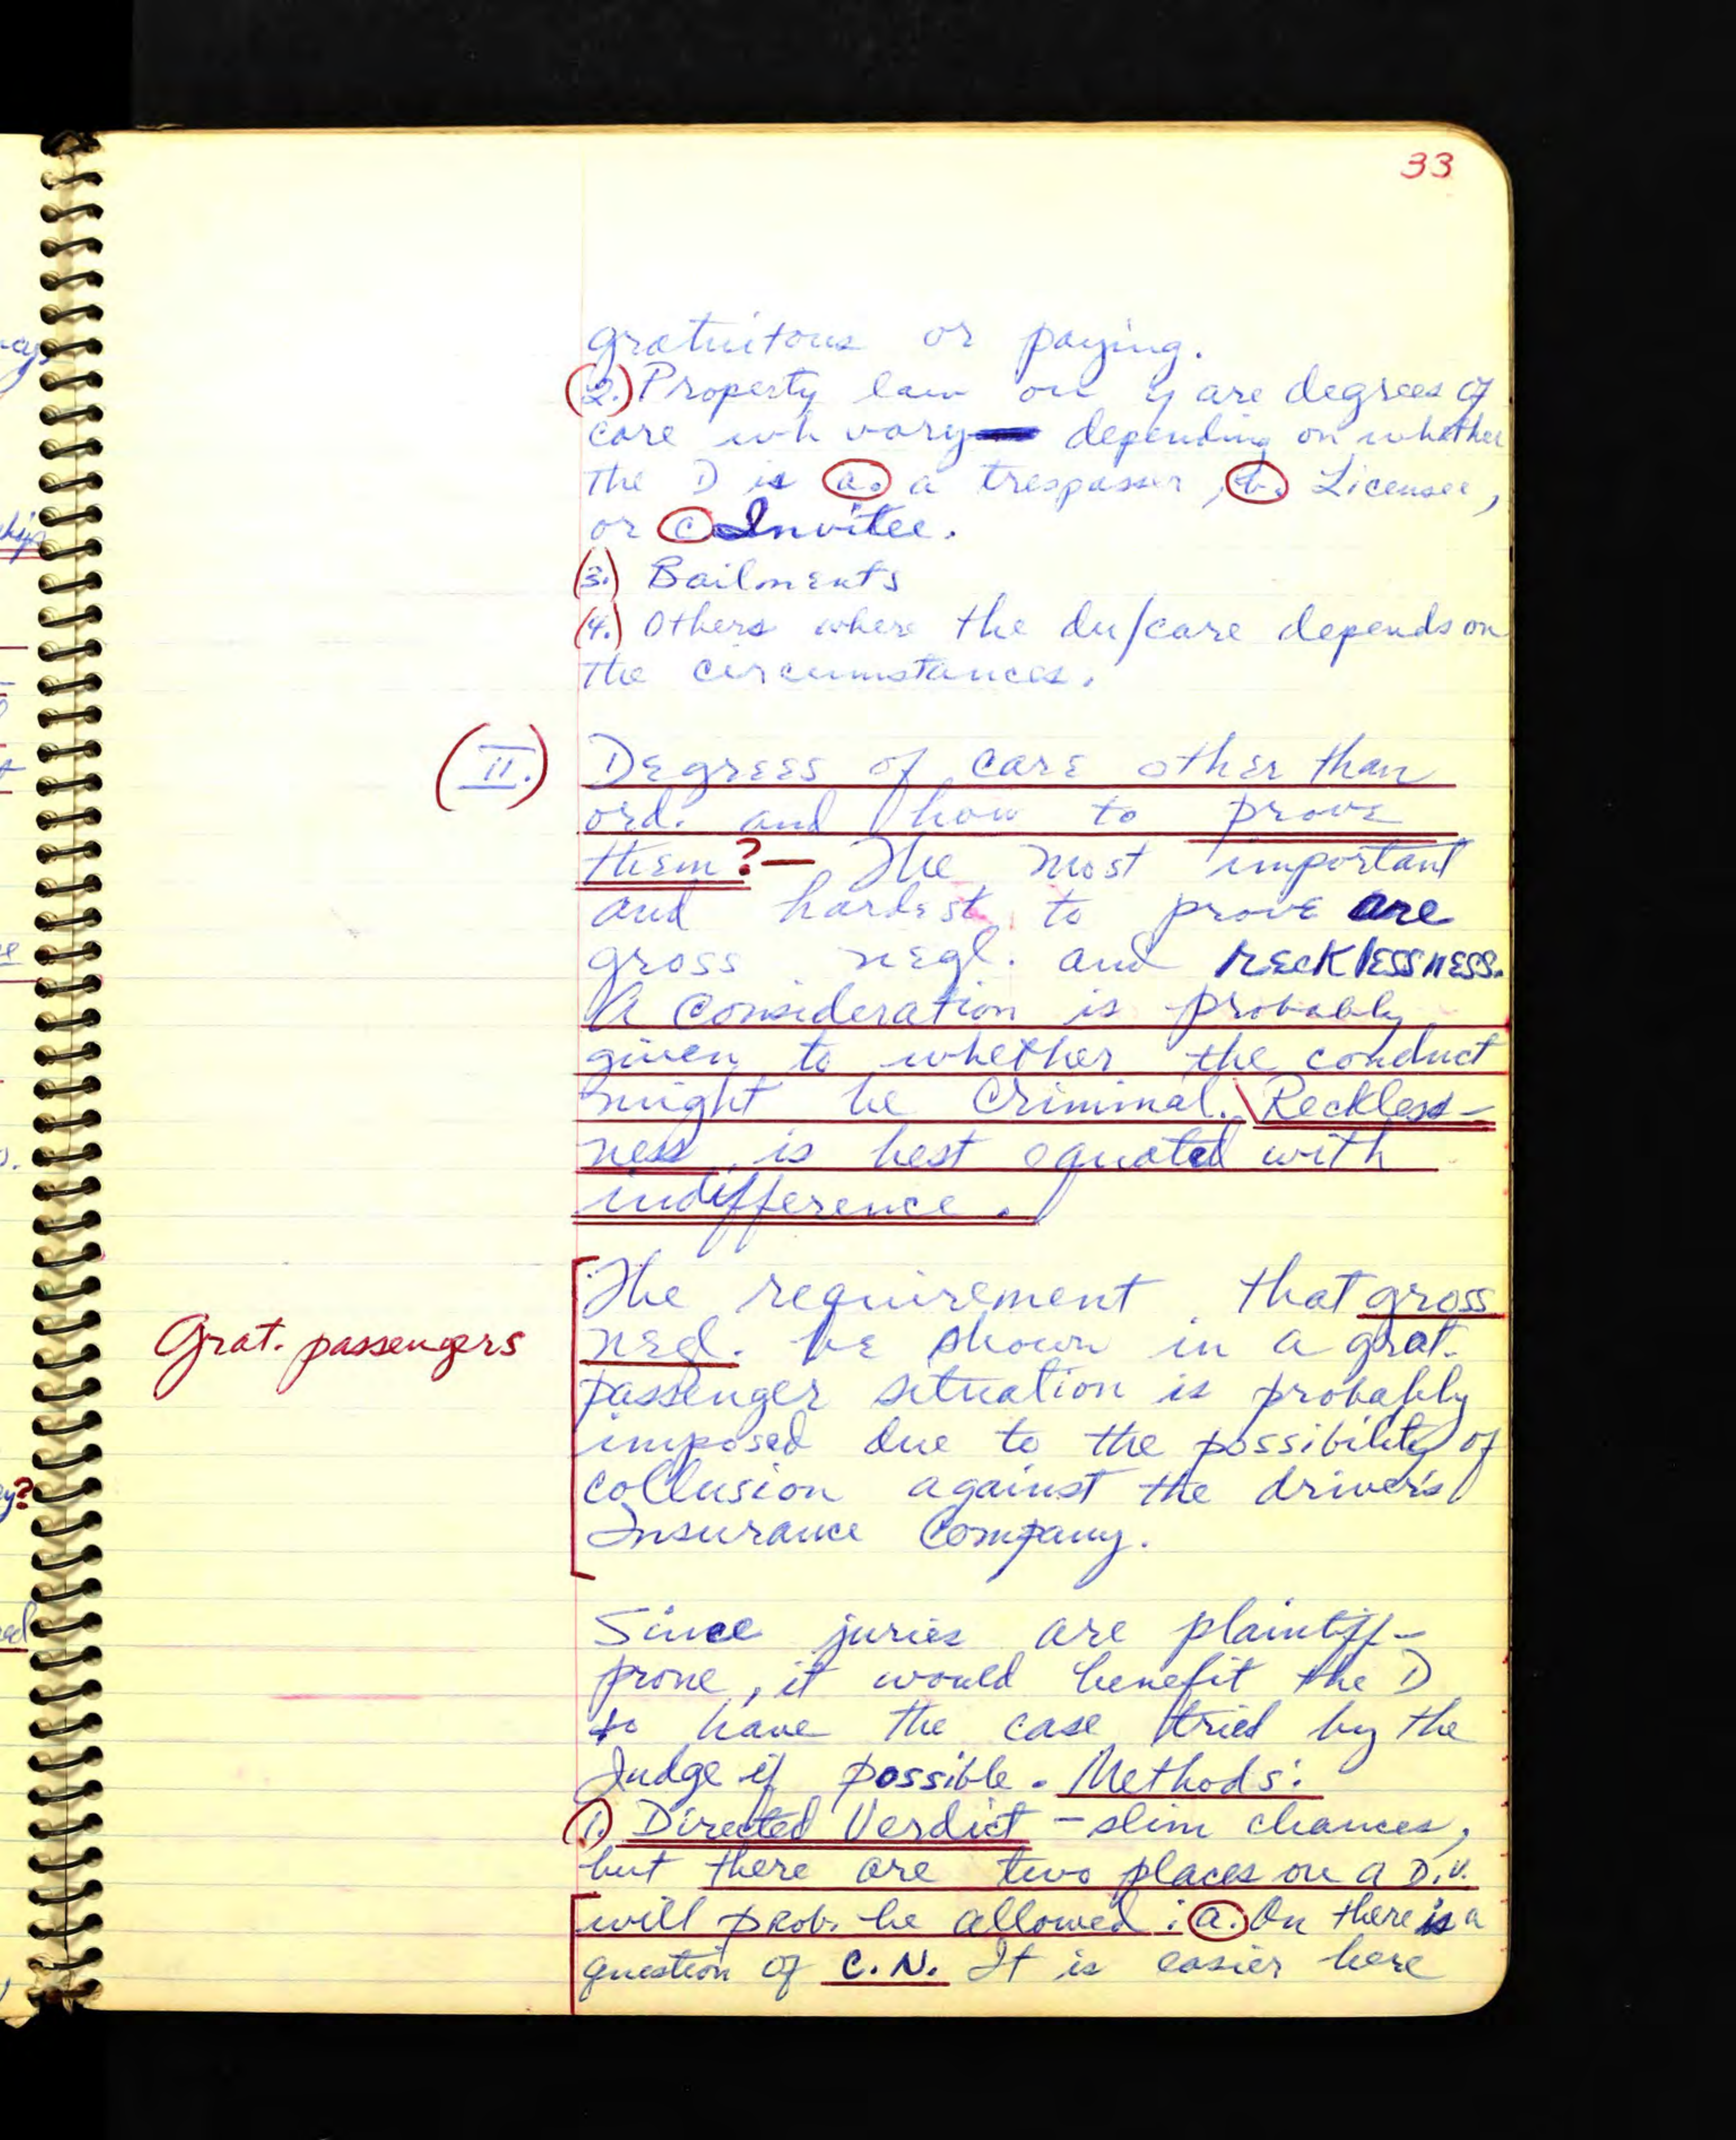 33
gratuitous or paying.
(2.) Property law on y are degrees of
care wh vary depending on whether
the D is a. a trespasser, b. Licensee,
or c Invitee.
(3.) Bailments
(4.) Others where the du/care depends on
the circumstances.
(II.) Degrees of care other than
ord. and how to prove
them?— The most important
and hardest to prove are
gross negl. and recklessness.
A consideration is probably
given to whether the conduct
might be Criminal. Reckless-
ness is best equated with
indifference.
The requirement that gross
Grat. passengers
negl. be shown in a grat.
passenger situation is probably
imposed due to the possibility of
collusion against the driver's
Insurance Company.
Since juries are plaintiff-
prone, it would benefit the D
to have the case tried by the
Judge if possible. Methods:
1. Directed Verdict – slim chances,
but there are two places on a D.V.
will prob. be allowed: a. On there is a
question of C.N. It is easier here